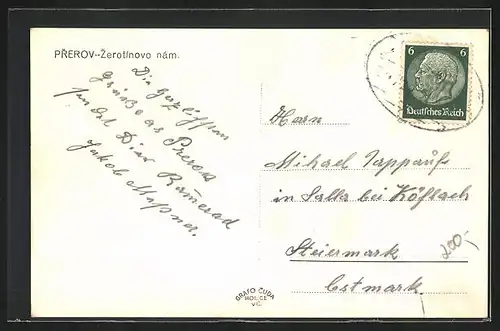 PŘEROV--Žerotínovo nám.
Die herzlichsten
Grüße aus Prerau
sendet Dir Kamerad
Jakob
6 6
Deutsches Reich
Herrn
Mihael
in Salla bei Köflach
Steiermark
Ostmark.
200,-
GRAFO ČUDA
HOLICE
V Č.